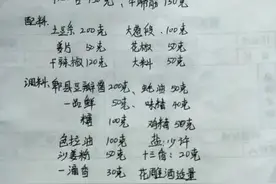 配料:
土豆条 200克 大葱段 100克
姜片 50克 花椒 50克
干辣椒 120克 大料 50克
调料: 郫县豆瓣酱 200克 蚝油 50克
一品鲜 50克 味精 40克
糖 100克 鸡精 50克
色拉油 100克 盐 少许
沙姜粉 50克 十三香: 20克
一滴香 30克 花雕酒适量